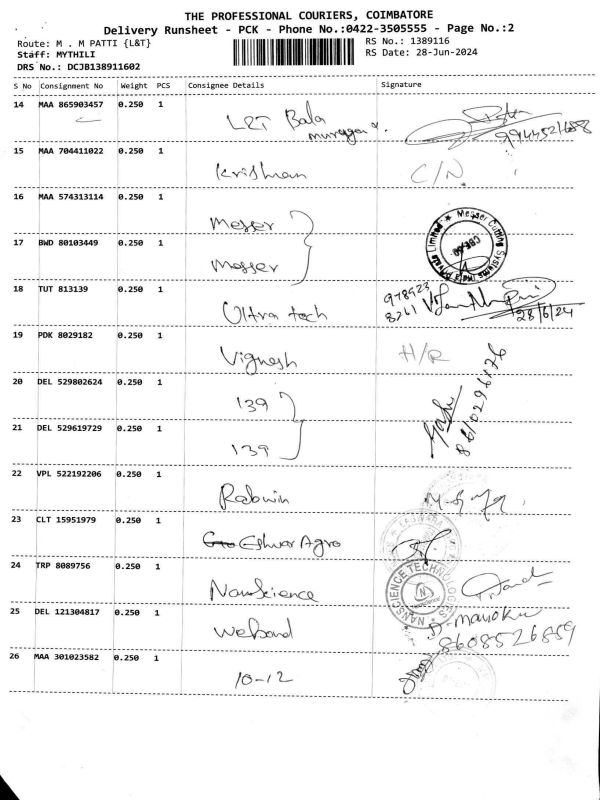 THE PROFESSIONAL COURIERS, COIMBATORE
Delivery Runsheet - PCK - Phone No.:0422-3505555 - Page No.:2
Route: M . M PATTI {L&T}
RS No.: 1389116
Staff: MYTHILI
RS Date: 28-Jun-2024
DRS No.: DCJB138911602
S No Consignment No Weight PCS Consignee Details Signature
14 MAA 865903457 0.250 1
L&T Bala
9944521688
15 MAA 704411022 0.250 1
Krishnan C/N.
16 MAA 574313114 0.250 1
Messer
Messer Cutting Systems India Private Limited
17 BWD 80103449 0.250 1
Messer
18 TUT 813139 0.250 1
Ultra tech
978923
8261
28/6/24
19 PDK 8029182 0.250 1
Vignesh H/R
20 DEL 529802624 0.250 1
139
8610296176
21 DEL 529619729 0.250 1
139
22 VPL 522192206 0.250 1
Robwin
23 CLT 15951979 0.250 1
Eshwar Agro
24 TRP 8089756 0.250 1
NanoScience
NANSCIENCE TECHNOLOGIES
25 DEL 121304817 0.250 1
D. Manoku
8608526859
26 MAA 301023582 0.250 1
10-12